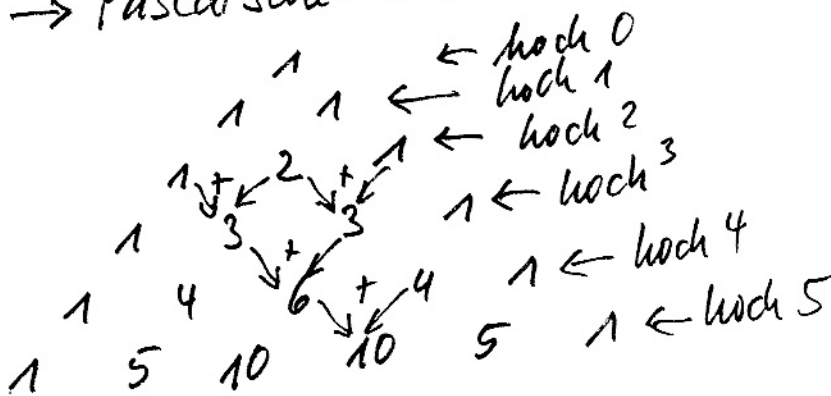 →
1 ← hoch 0
1 1 ← hoch 1
1 + 2 + 1 ← hoch 2
1 3 + 3 1 ← hoch 3
1 4 6 + 4 1 ← hoch 4
1 5 10 10 5 1 ← hoch 5